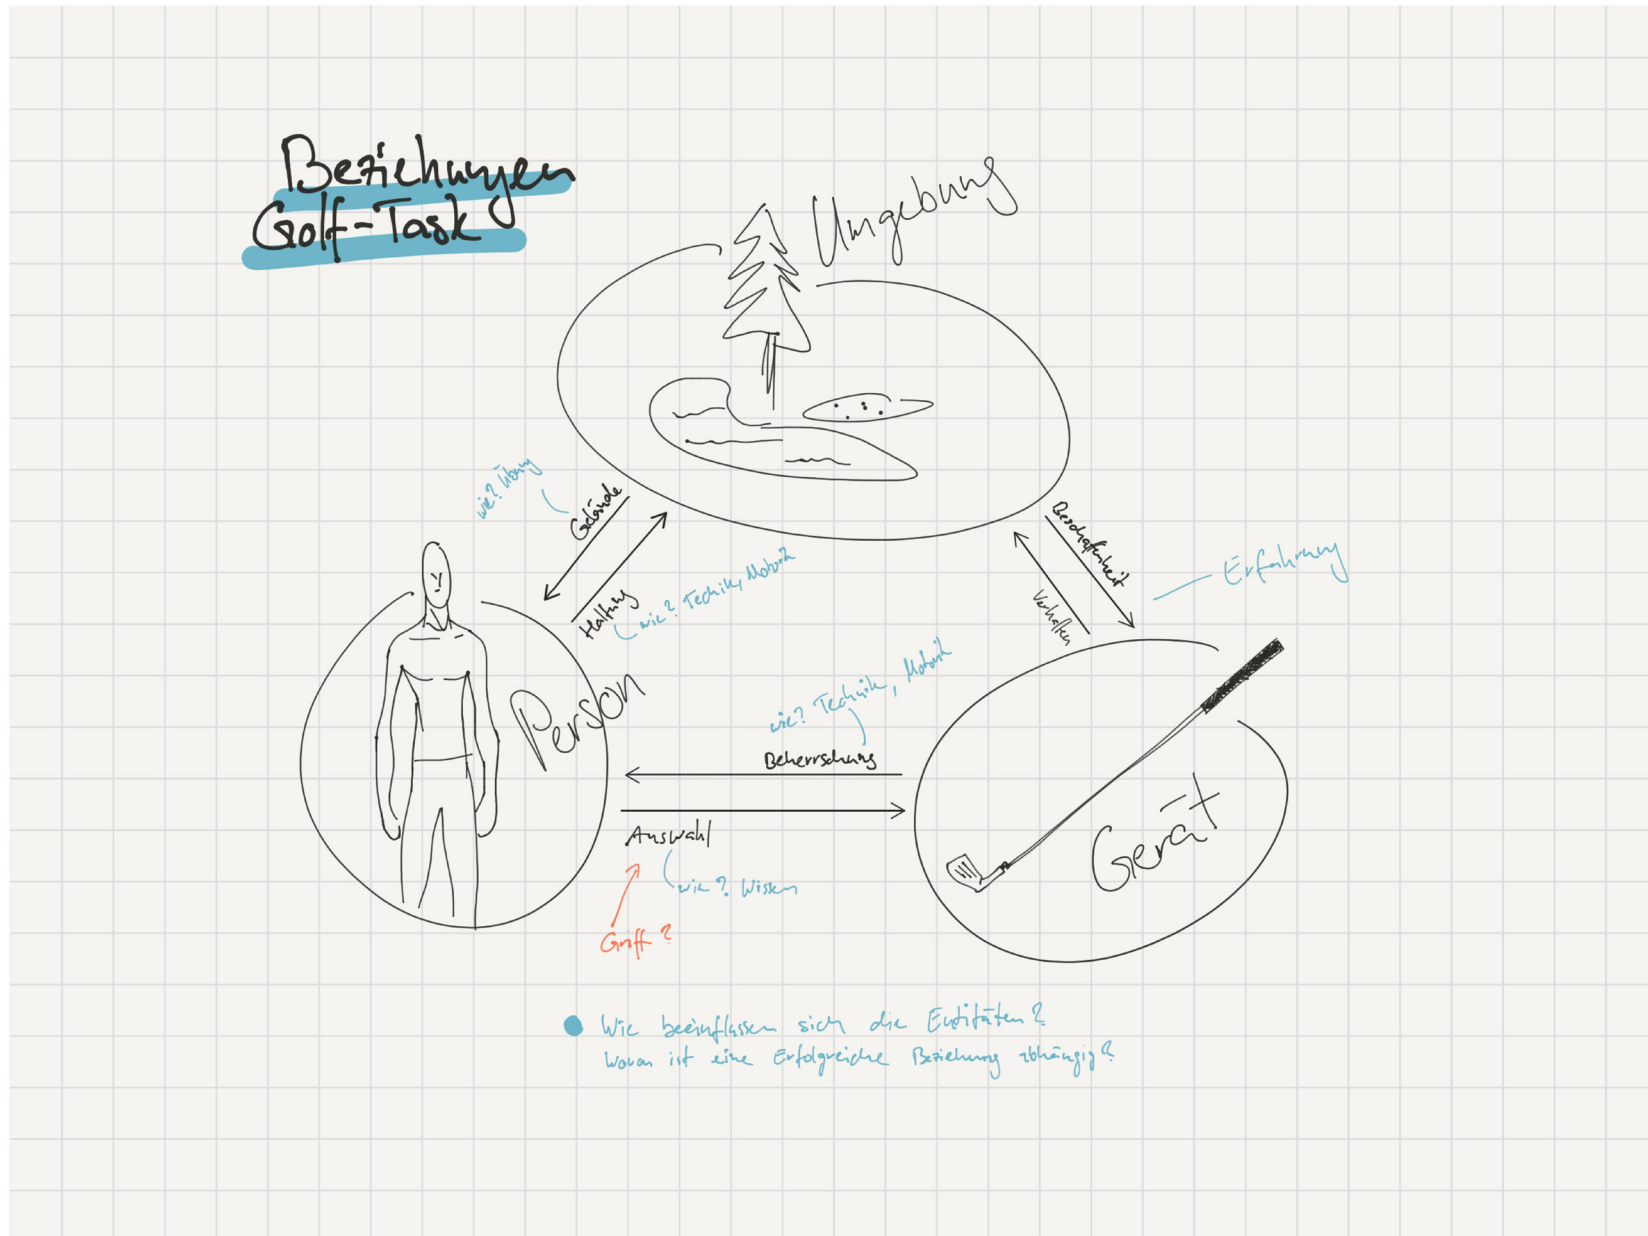 Beziehungen
Golf-Task
Umgebung
wie? Übung
Gelände
Haltung
wie? Technik, Motorik
Beschaffenheit
Verhalten
Erfahrung
Person
wie? Technik, Motorik
Beherrschung
Auswahl
wie? Wissen
Griff?
Gerät
Wie beeinflussen sich die Entitäten?
Woran ist eine Erfolgreiche Beziehung abhängig?